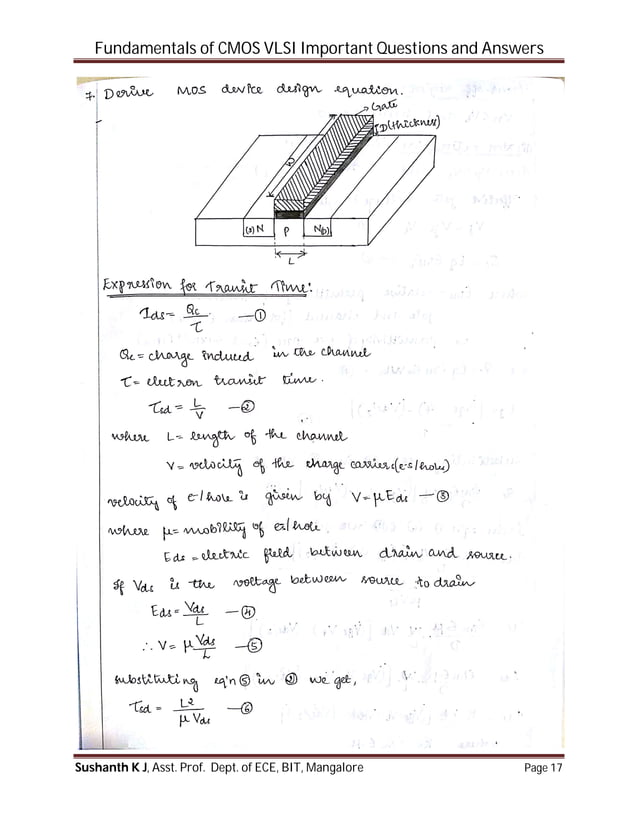 Fundamentals of CMOS VLSI Important Questions and Answers
7. Derive MOS device design equation.
Gate
D(thickness)
(s)N P N(D)
L
Expression for Transit Time:
Ids = Qc/τ —①
Qc = charge induced in the channel
τ = electron transit time.
τsd = L/V —②
where L = length of the channel
V = velocity of the charge carriers (e-s/hole)
velocity of e-/hole is given by V = μEds —③
where μ = mobility of es/hole
Eds = electric field between drain and source.
If Vds is the voltage between source to drain
Eds = Vds/L —④
∴ V = μ Vds/L —⑤
substituting eq'n ⑤ in ② we get,
τsd = L²/μ Vds —⑥
Sushanth K J, Asst. Prof. Dept. of ECE, BIT, Mangalore Page 17